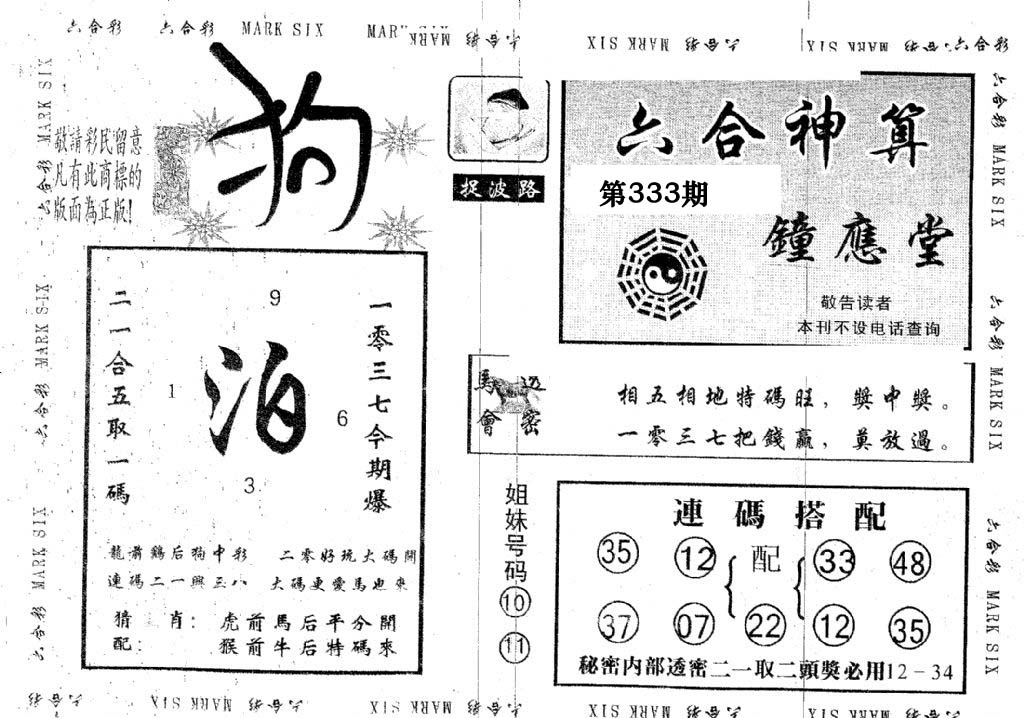 六合彩 六合彩 MARK SIX MARK SIX 六合彩 MARK SIX 六合彩 MARK SIX 六合彩 六合彩
狗
敬請彩民留意
凡有此商標的
版面為正版!
捉波路
六合神算
第333期
鐘應堂
敬告读者
本刊不设电话查询
二一合五取一碼
9
1
泊
6
3
一零三七今期爆
龍前鷄后狗中彩 二零好玩大碼開
連碼二一興三八 大碼更愛馬也來
猜肖: 虎前馬后平分開
配: 猴前牛后特碼來
馬會
透密
相五相地特碼旺,獎中獎。
一零三七把錢贏,莫放過。
姐妹号码
10
11
連碼搭配
35 12 配 33 48
37 07 22 12 35
秘密内部透密二一取二頭獎必用12-34
六合彩 MARK SIX 六合彩 MARK SIX 六合彩 MARK SIX 六合彩
六合彩 MARK SIX 六合彩 MARK SIX 六合彩 MARK SIX
六合彩 MARK SIX 六合彩 MARK SIX 六合彩 MARK SIX 六合彩 MARK SIX 六合彩